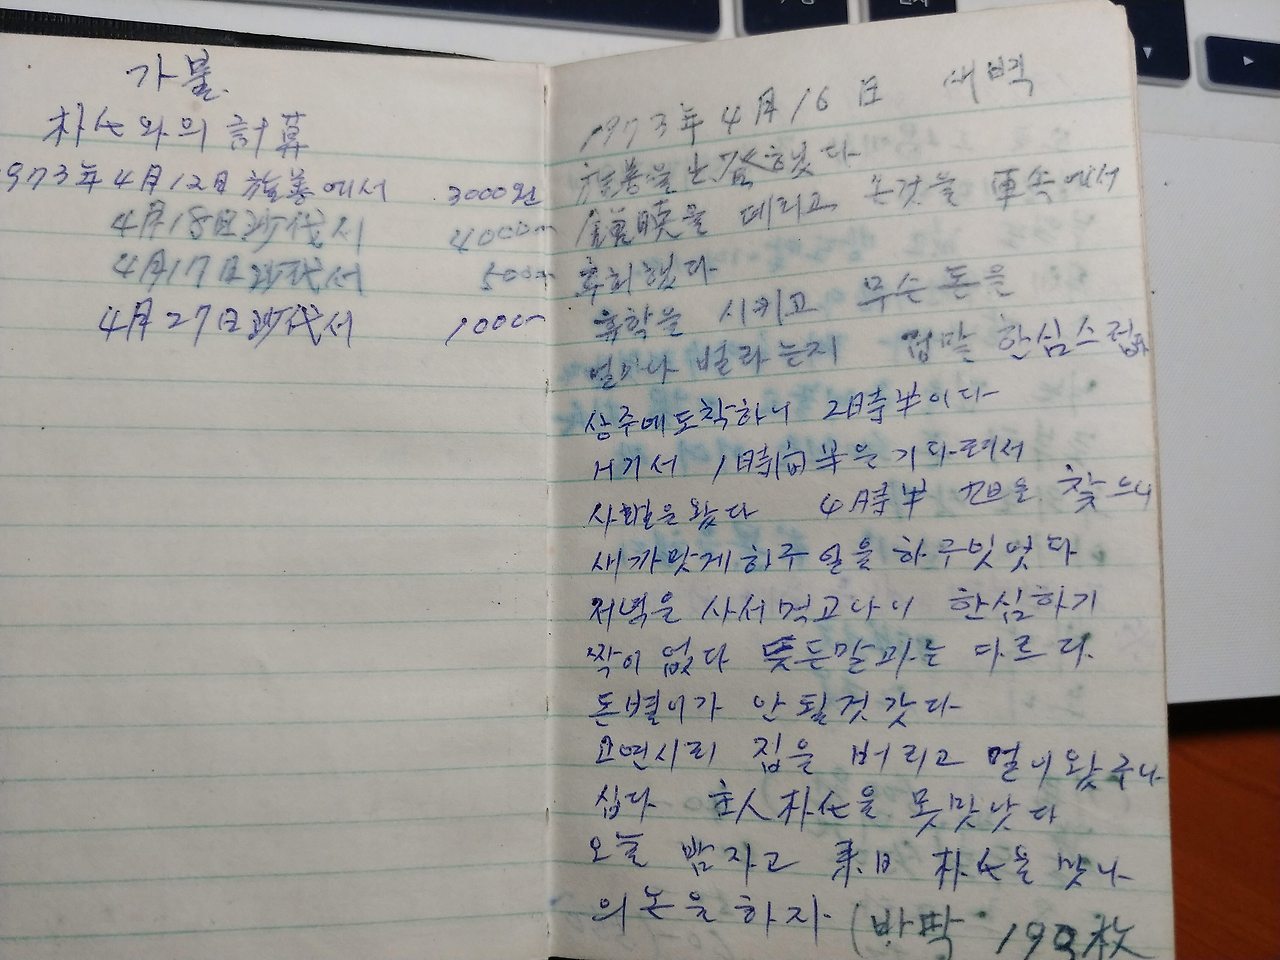 가불
朴氏와의 計算
1973年 4月 12日 에서 3000원
4月 18日 沙代서 4000
4月 17日 沙代서 500
4月 27日 沙代서 1000
1973年 4月 16日 새벽
을 発했다
을 데리고 온것을 車속에서
후회했다
휴학을 시키고 무슨돈을
얼마나 벌라는지 정말 한심스럽다
상주에도착하니 2時半이다
거기서 1時間半을 기다려서
왔다 4時半 찾으니
새까맣게하주 일을 하구잇엇다
저녁을 사서먹고나니 한심하기
짝이 없다 듯든말과는 다르다.
돈벌이가 안 될것 갓다
고연시리 집을 버리고 멀니왔구나
십다 主人朴氏을 못맛낫다
오늘 밤자고 来日 朴氏을 맛나
의논을하자 (반딱 枚